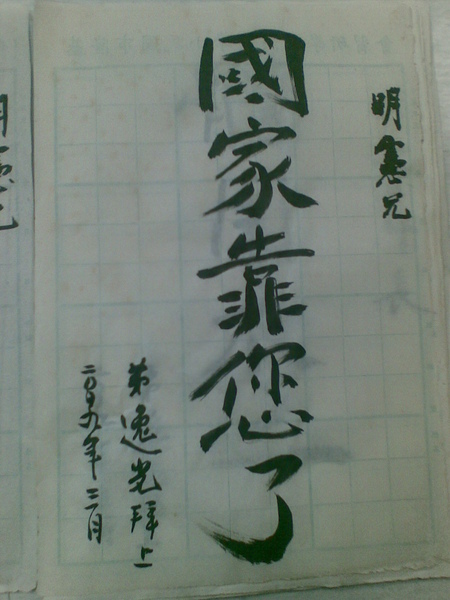 明憲兄
國家靠您了
弟逸光拜上
二〇〇九年三月